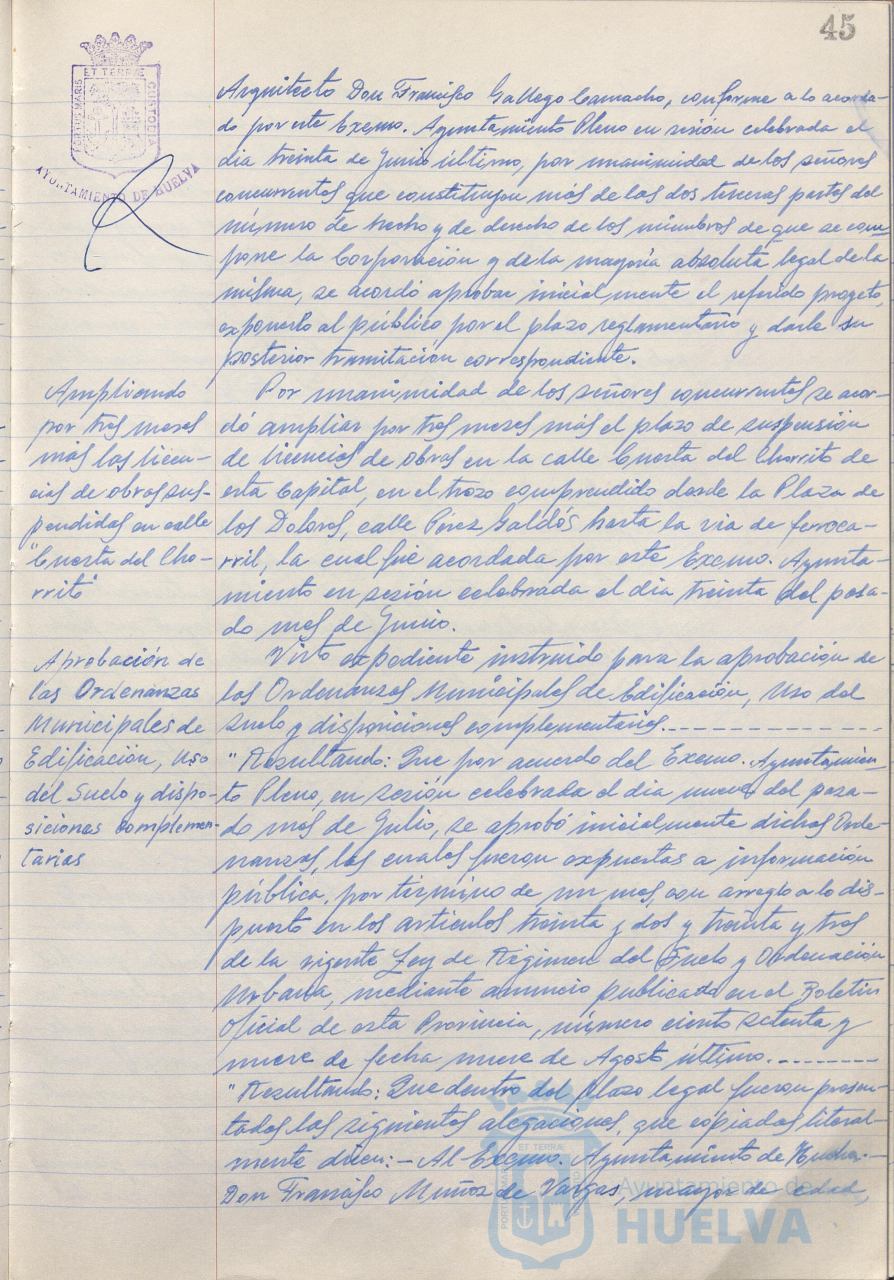 45
ET TERRÆ
PORTUS MARIS
CUSTODIA
AYUNTAMIENTO DE HUELVA
Arquitecto Don Francisco Gallego Camacho, conforme a lo acorda-
do por este Excmo. Ayuntamiento Pleno en sesión celebrada el
dia treinta de Junio último, por unanimidad de los señores
concurrentes que constituyen más de las dos terceras partes del
número de hecho y de derecho de los miembros de que se com
pone la Corporación y de la mayoria absoluta legal de la
misma, se acordó aprobar inicialmente el referido proyecto,
exponerlo al público, por el plazo reglamentario y darle su
posterior tramitación correspondiente.
Ampliando
por tres meses
más las licen-
cias de obras sus-
pendidas en calle
"Cuesta del Cho-
rrito"
Por unanimidad de los señores concurrentes se acor-
dó ampliar por tres meses más el plazo de suspensión
de licencias de obras en la calle Cuesta del Chorrito de
esta Capital, en el trozo comprendido desde la Plaza de
los Dolores, calle Pérez Galdós hasta la via de ferroca-
rril, la cual fue acordada por este Excmo. Ayunta-
miento en sesión celebrada el dia treinta del pasa-
do mes de Junio.
Aprobación de
las Ordenanzas
Municipales de
Edificación, Uso
del Suelo y dispo-
siciones complemen-
tarias
Visto expediente instruido para la aprobación de
las Ordenanzas Municipales de Edificación, Uso del
Suelo y disposiciones complementarias.
"Resultando: Que por acuerdo del Excmo. Ayuntamien-
to Pleno, en sesión celebrada el dia nueve del pasa-
do mes de Julio, se aprobó inicialmente dichas Orde-
nanzas, las cuales fueron expuestas a información
pública, por término de un mes, con arreglo a lo dis-
puesto en los articulos treinta y dos y treinta y tres
de la vigente Ley de Régimen del Suelo y Ordenación
Urbana, mediante anuncio publicado en el Boletin
Oficial de esta Provincia, número ciento setenta y
nueve de fecha nueve de Agosto último.
"Resultando: Que dentro del plazo legal fueron presen-
tadas las siguientes alegaciones, que copiadas literal-
mente dicen: - Al Excmo. Ayuntamiento de Huelva.-
Don Francisco Muñoz de Vargas, mayor de edad,
Ayuntamiento de
HUELVA